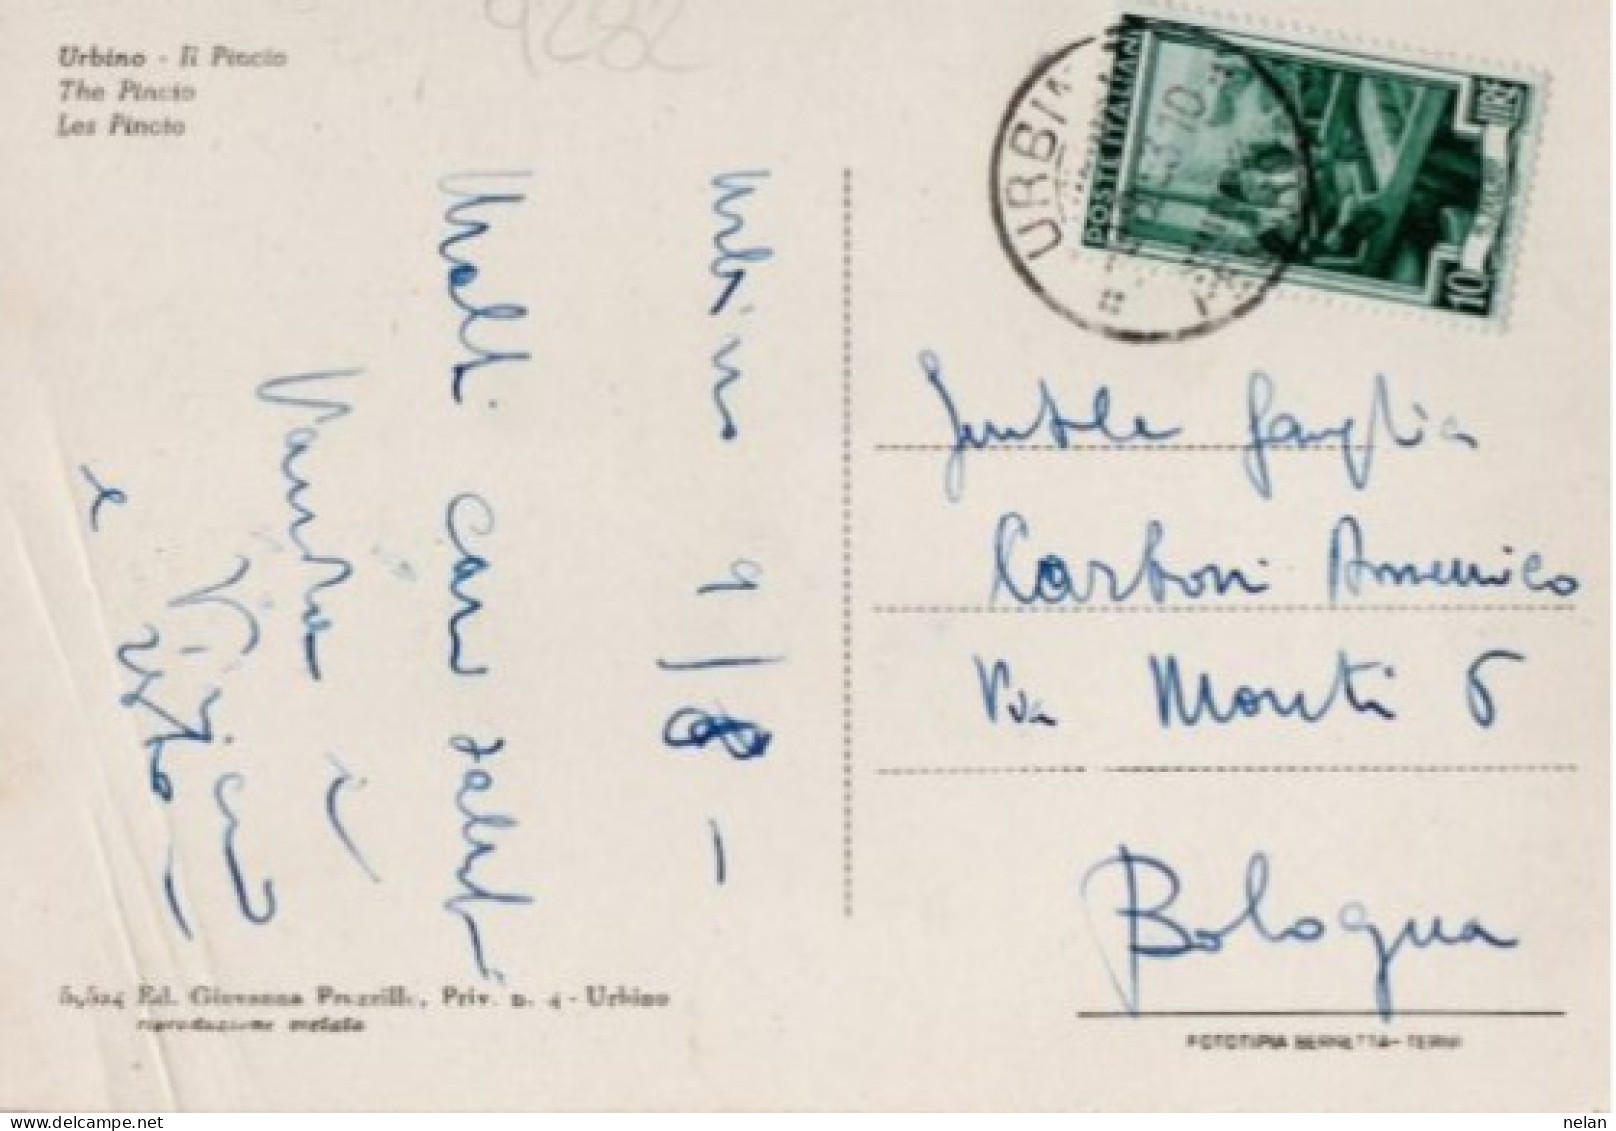 9252
Urbino - Il Pincio
The Pincio
Les Pincio
URBINO
POSTE ITALIANE
LIRE
10
Urbino 9/8 -
Molti cari saluti
e
Gentile famiglia
Carboni Amerigo
Via Monti 5
Bologna
Ed. Giovanna Priv. n. 4 - Urbino
riproduzione vietata
FOTOTIPIA BERRETTA - TERNI
nelan